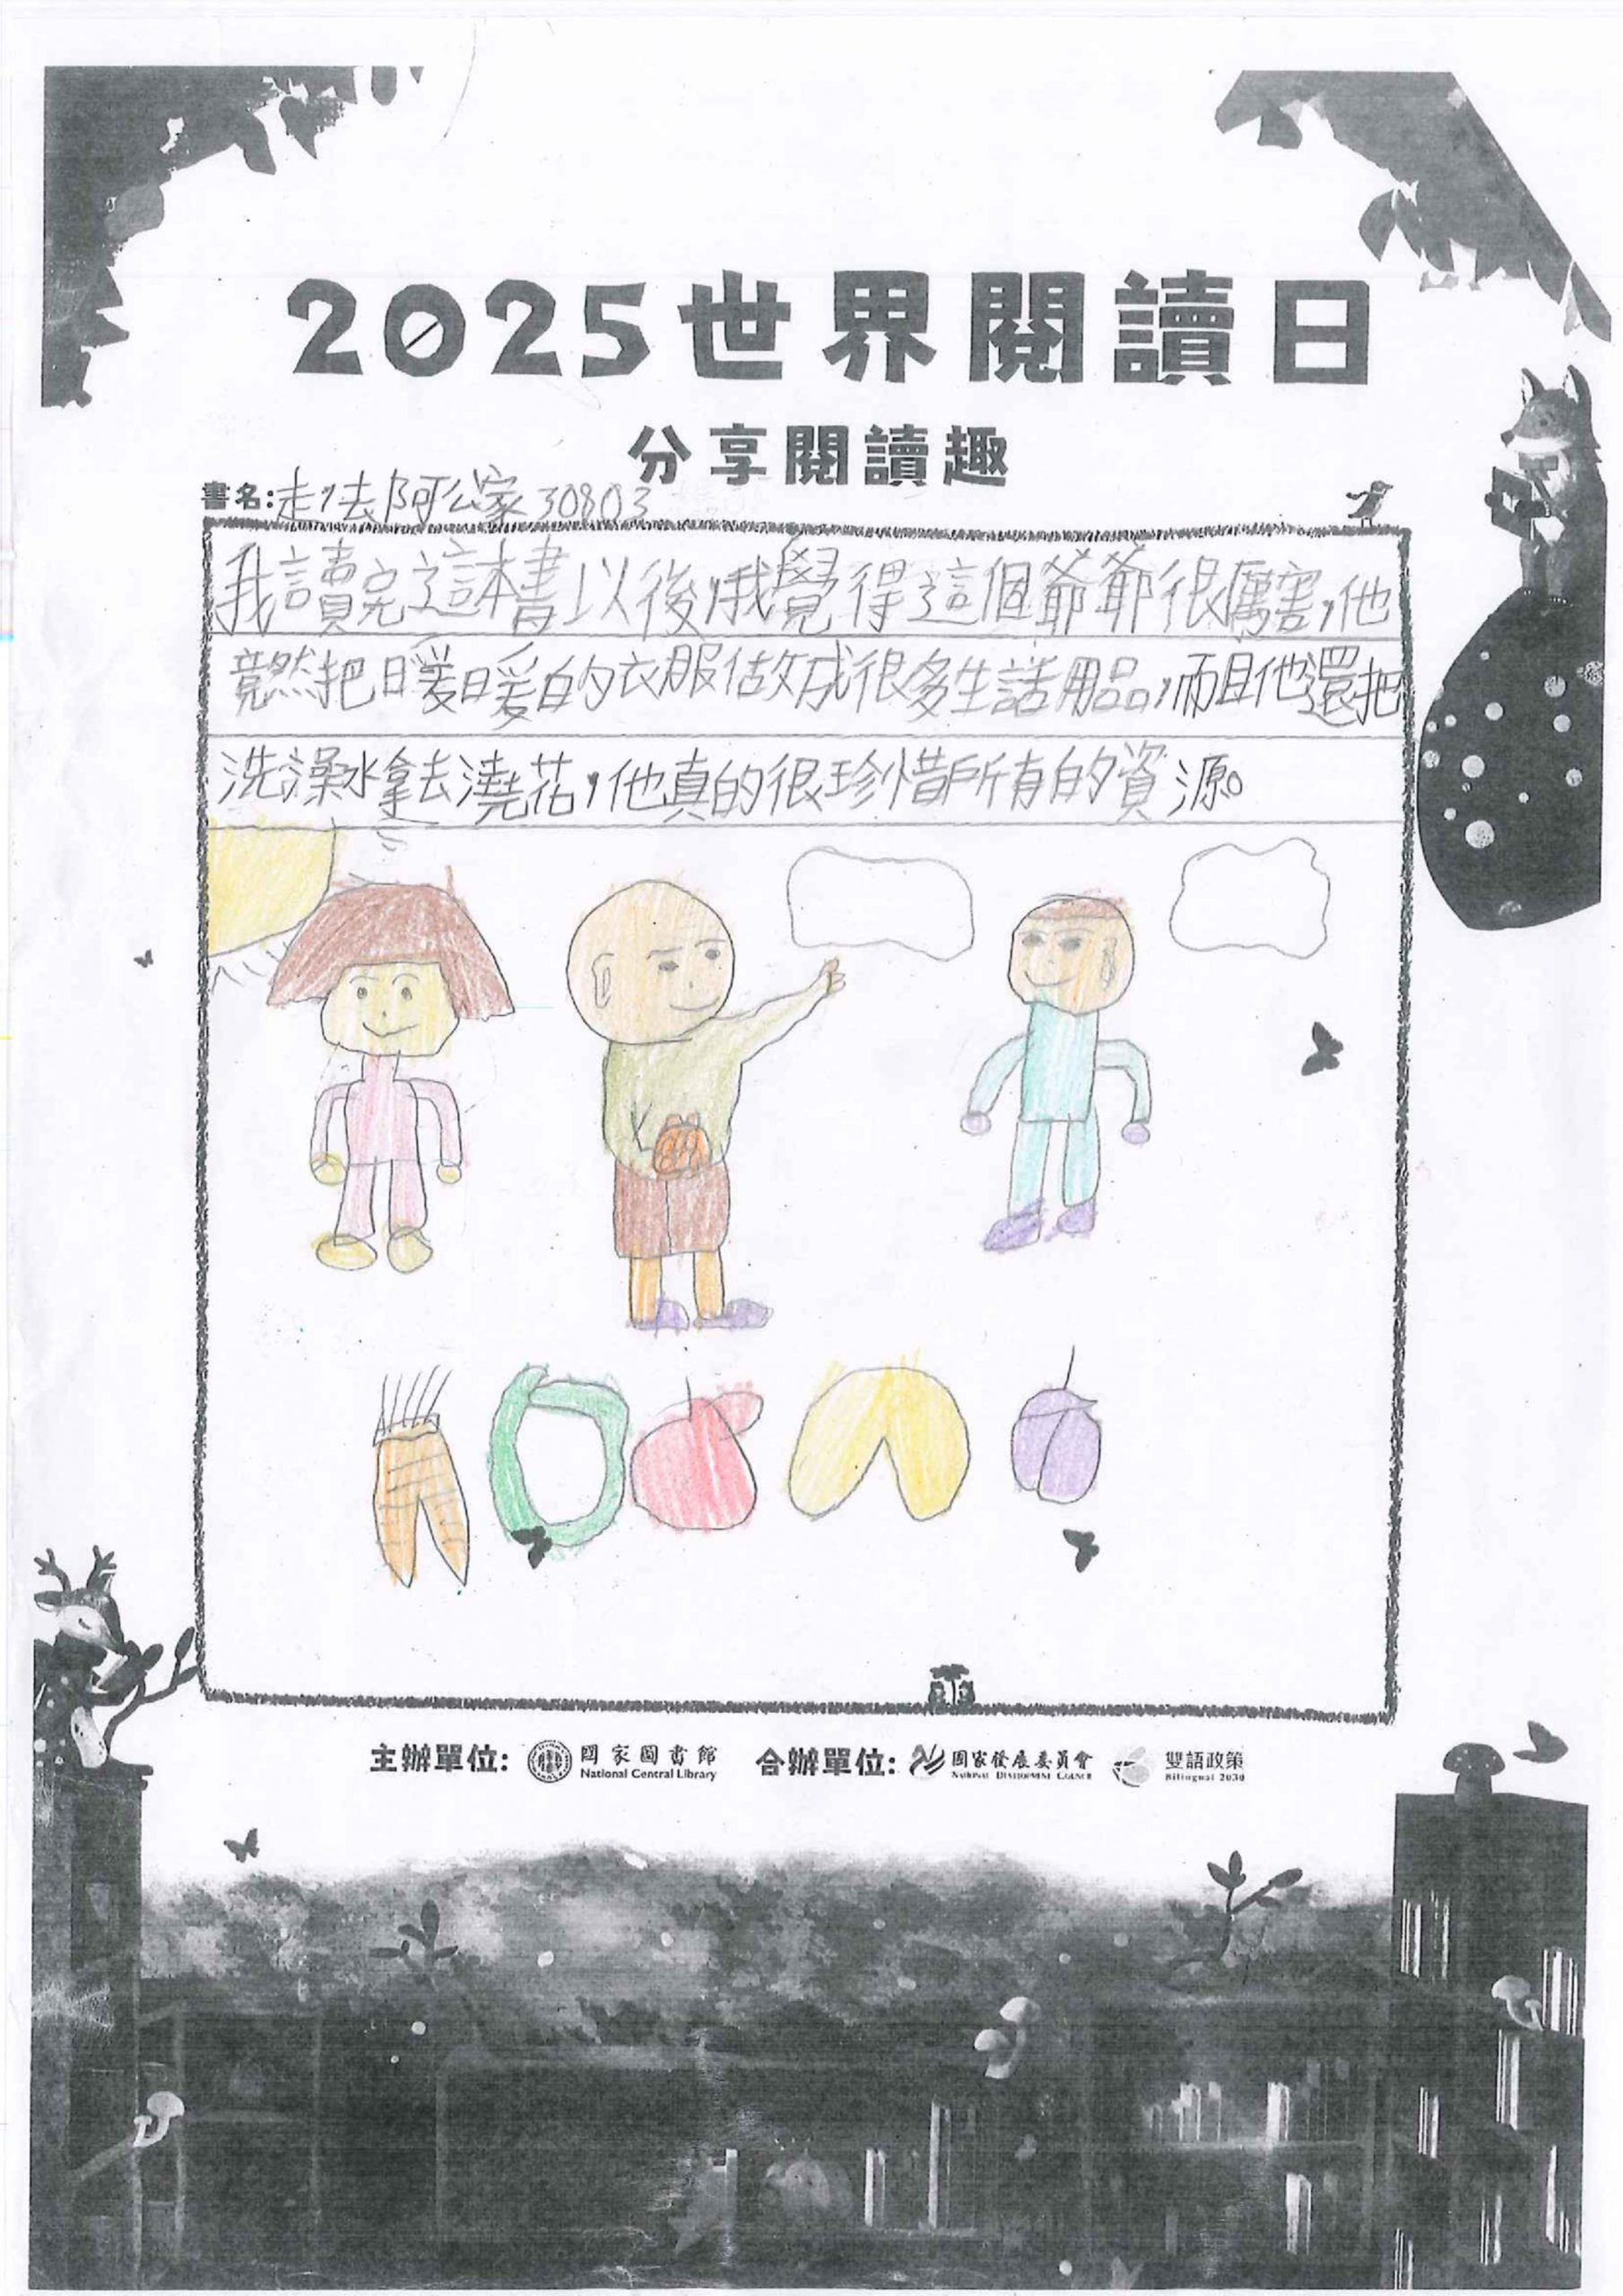 2025世界閱讀日
分享閱讀趣
書名:走,去阿公家 30803
我讀完這本書以後,我覺得這個爺爺很厲害,他
竟然把暖暖的衣服做成很多生活用品,而且他還把
洗澡水拿去澆花,他真的很珍惜所有的資源。
主辦單位: 國家圖書館 National Central Library 合辦單位: 國家發展委員會 National Development Council 雙語政策 Bilingual 2030